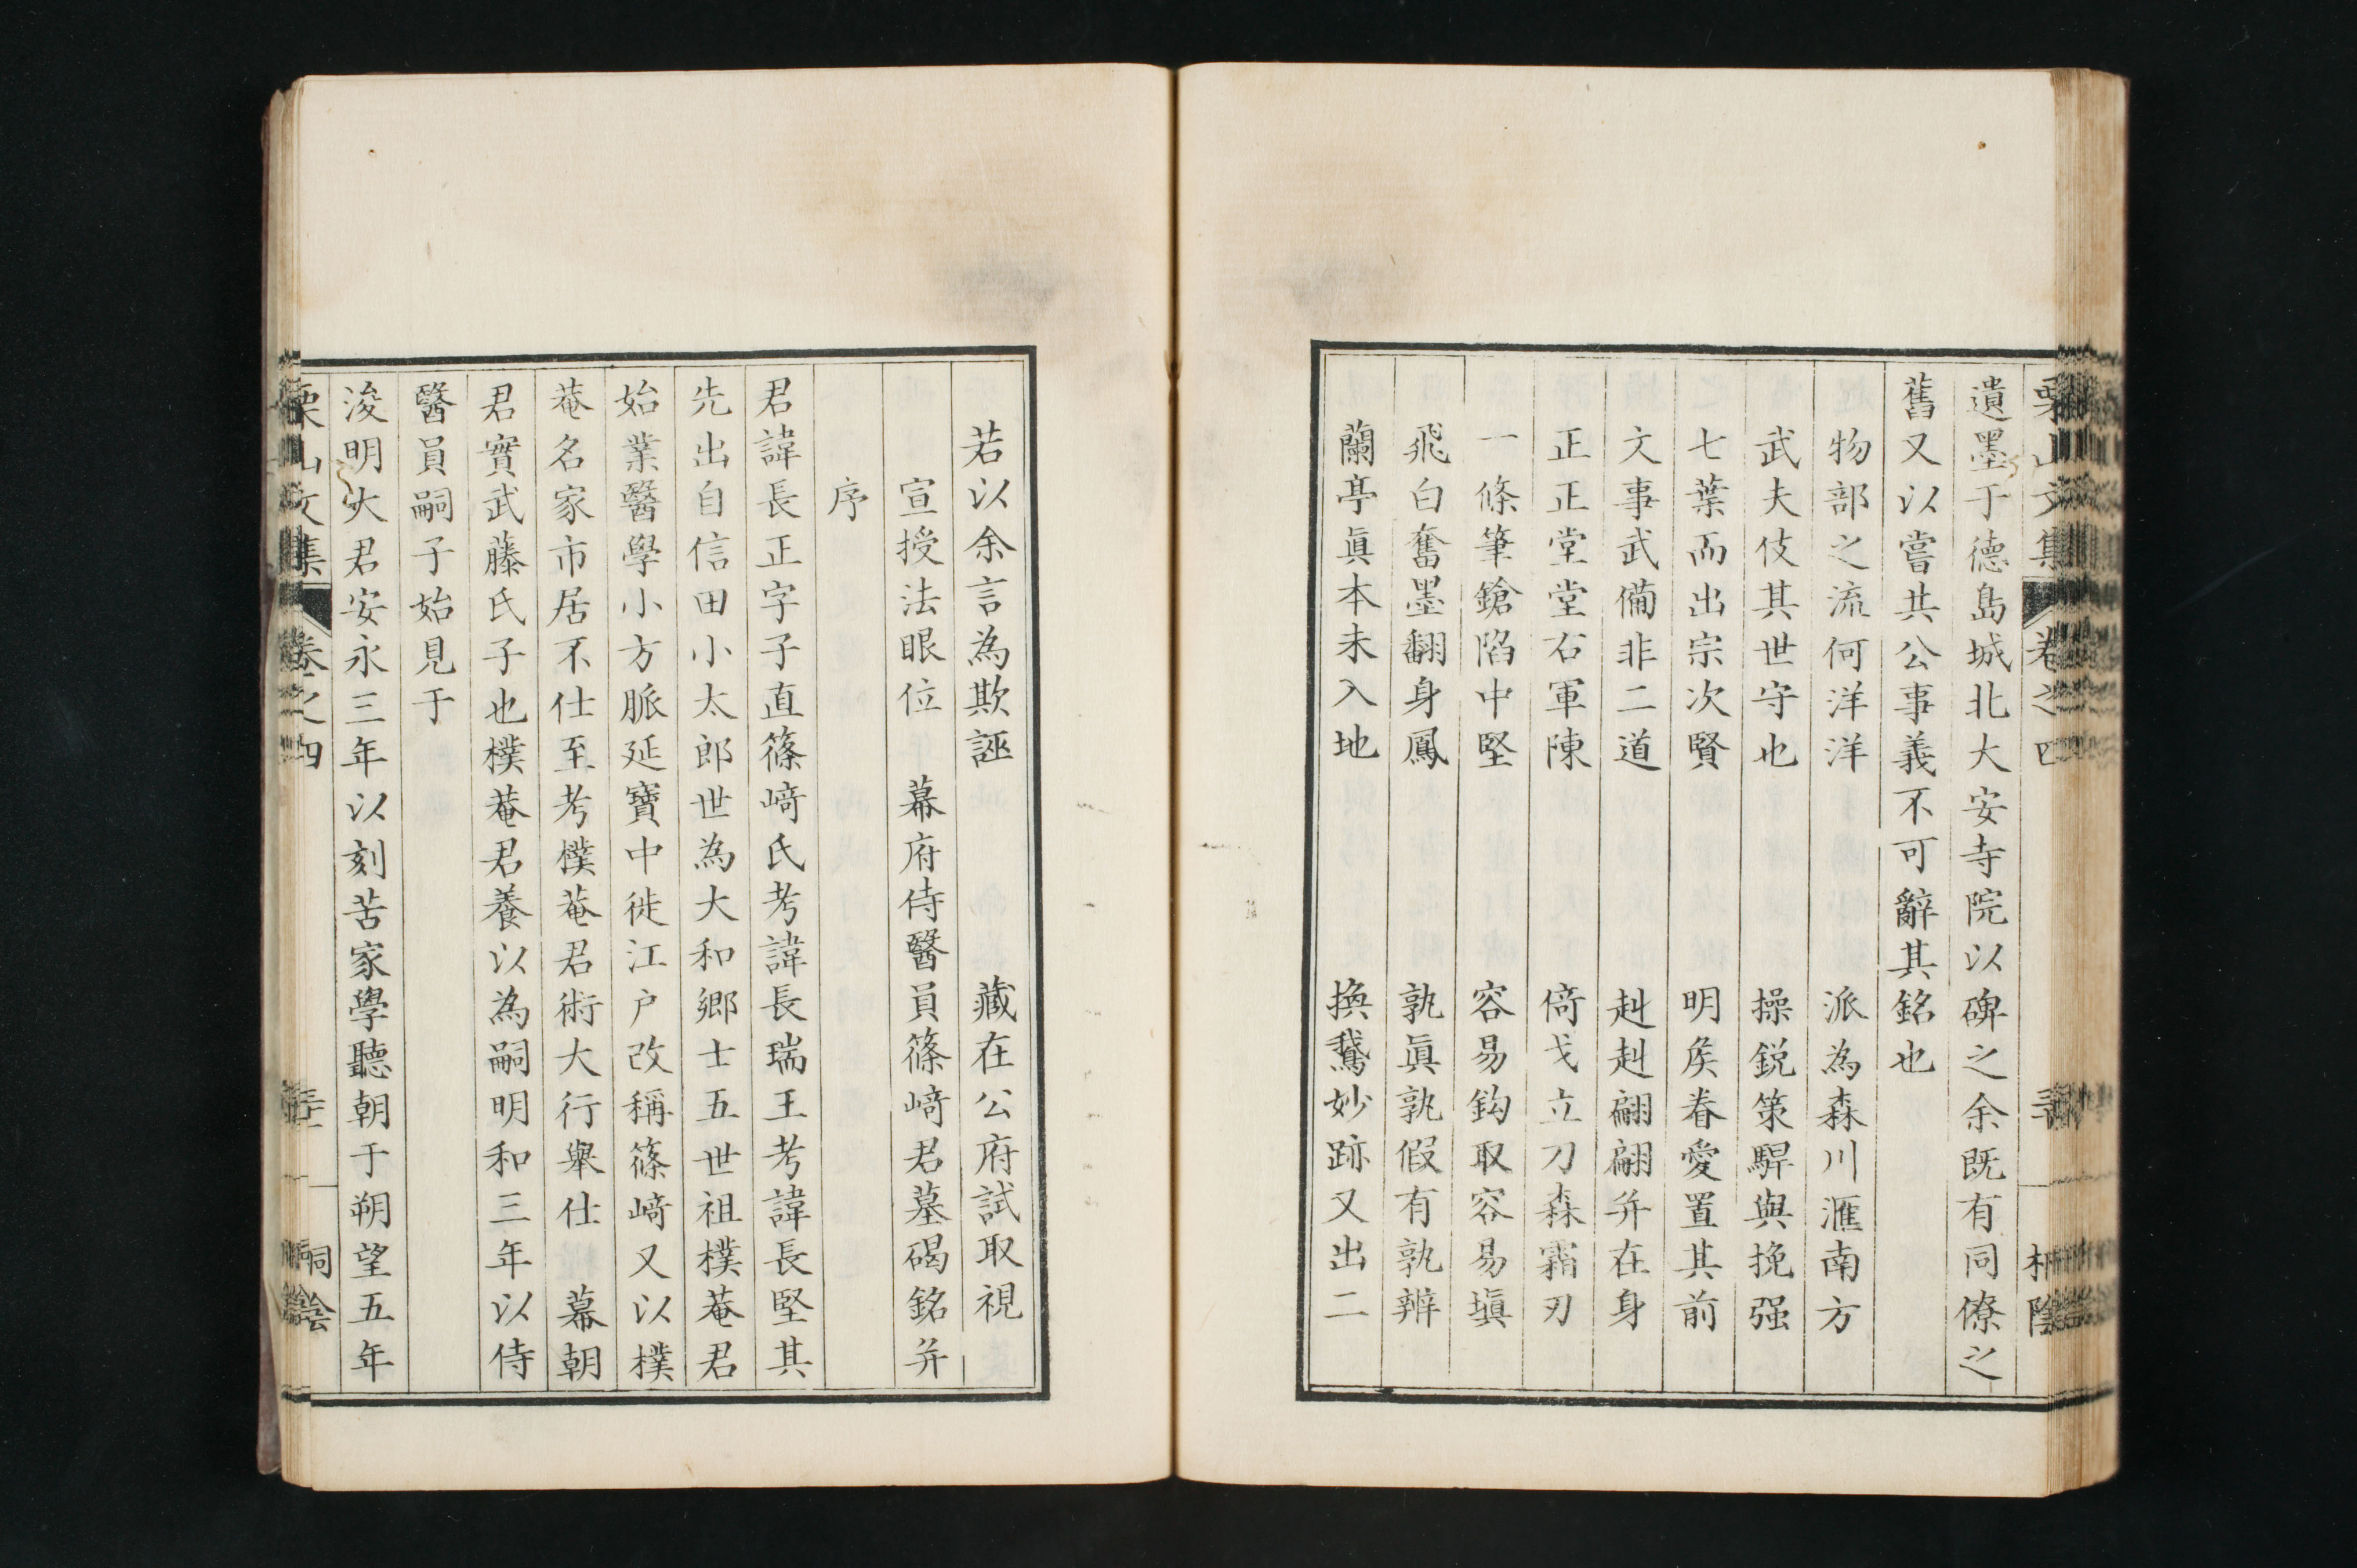 遺墨于德島城北大安寺院以碑之余既有同僚之
舊又以嘗共公事義不可辭其銘也
物部之流何洋洋　派為森川滙南方
武夫伎其世守也　操銳策駻與挽强
七葉而出宗次賢　明矦眷愛置其前
文事武備非二道　赳赳翩翩并在身
正正堂堂石軍陳　倚戈立刀森霜刃
一條筆鎗陷中堅　容易鈎取容易塡
飛白奮墨翻身鳳　孰眞孰假有孰辨
蘭亭眞本未入地　換鵞妙跡又出二
若以余言為欺誣　藏在公府試取視
宣授法眼位　幕府侍醫員篠﨑君墓碣銘并
序
君諱長正字子直篠﨑氏考諱長瑞王考諱長堅其
先出自信田小太郎世為大和鄉士五世祖樸菴君
始業醫學小方脈延寶中徙江户改稱篠﨑又以樸
菴名家市居不仕至考樸菴君術大行舉仕　幕朝
君實武藤氏子也樸菴君養以為嗣明和三年以侍
醫員嗣子始見于
浚明大君安永三年以刻苦家學聽朝于朔望五年
栗山文集　卷之四